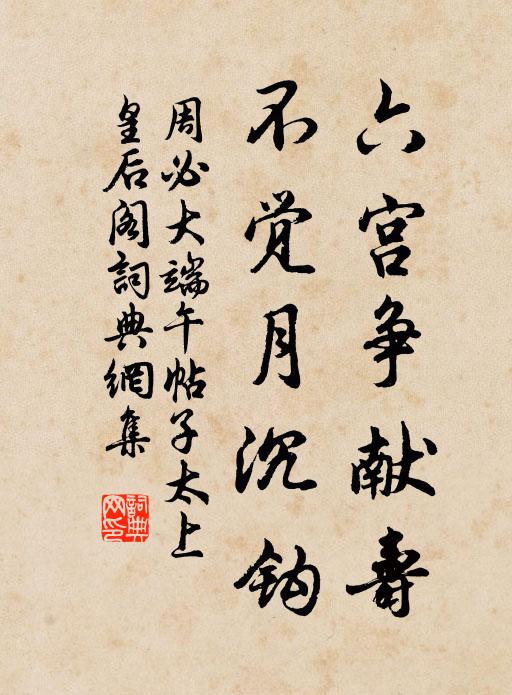 六宫争献寿
不觉月沉钩
周必大端午帖子太上
皇后阁詞典網集
詞典网印